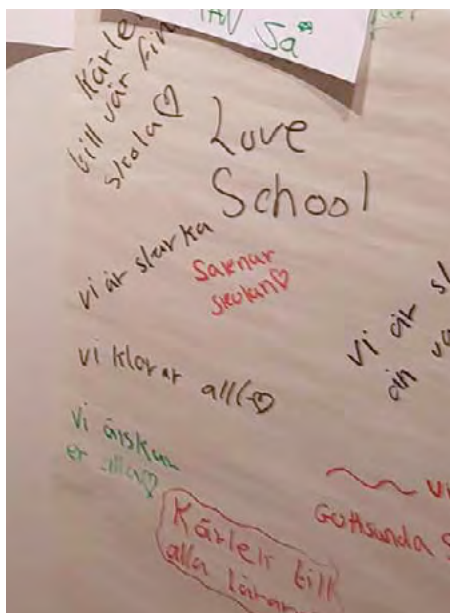 Sa
Kärle
till vår fin
skola♡
Love
School
vi är starka
Saknar
skolan♡
vi klarar allt♡
vi är
än
vi älskar
er alla♡
Gottsunda S
Kärlek till
alla lärar